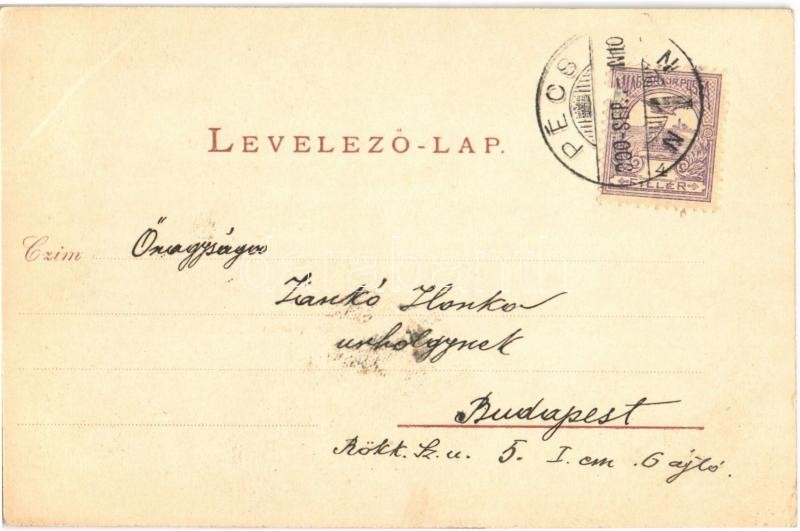 LEVELEZŐ-LAP.
PÉCS
MAGYAR KIR. POSTA
FILLÉR
Czim Őnagysága
Jankó Ilonka
urhölgynek
Budapest
Rökk. Sz. u. 5. I. em. 6 ajtó.
darabanth